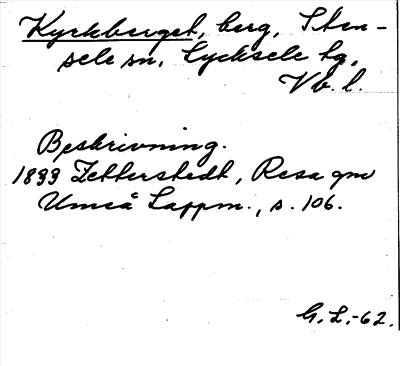 Kyrkberget, berg, Sten-
sele sn, Lycksele tg,
Vb. l.
Beskrivning.
1833 Zetterstedt, Resa gm
Umeå Lappm., s. 106.
G. L. -62.